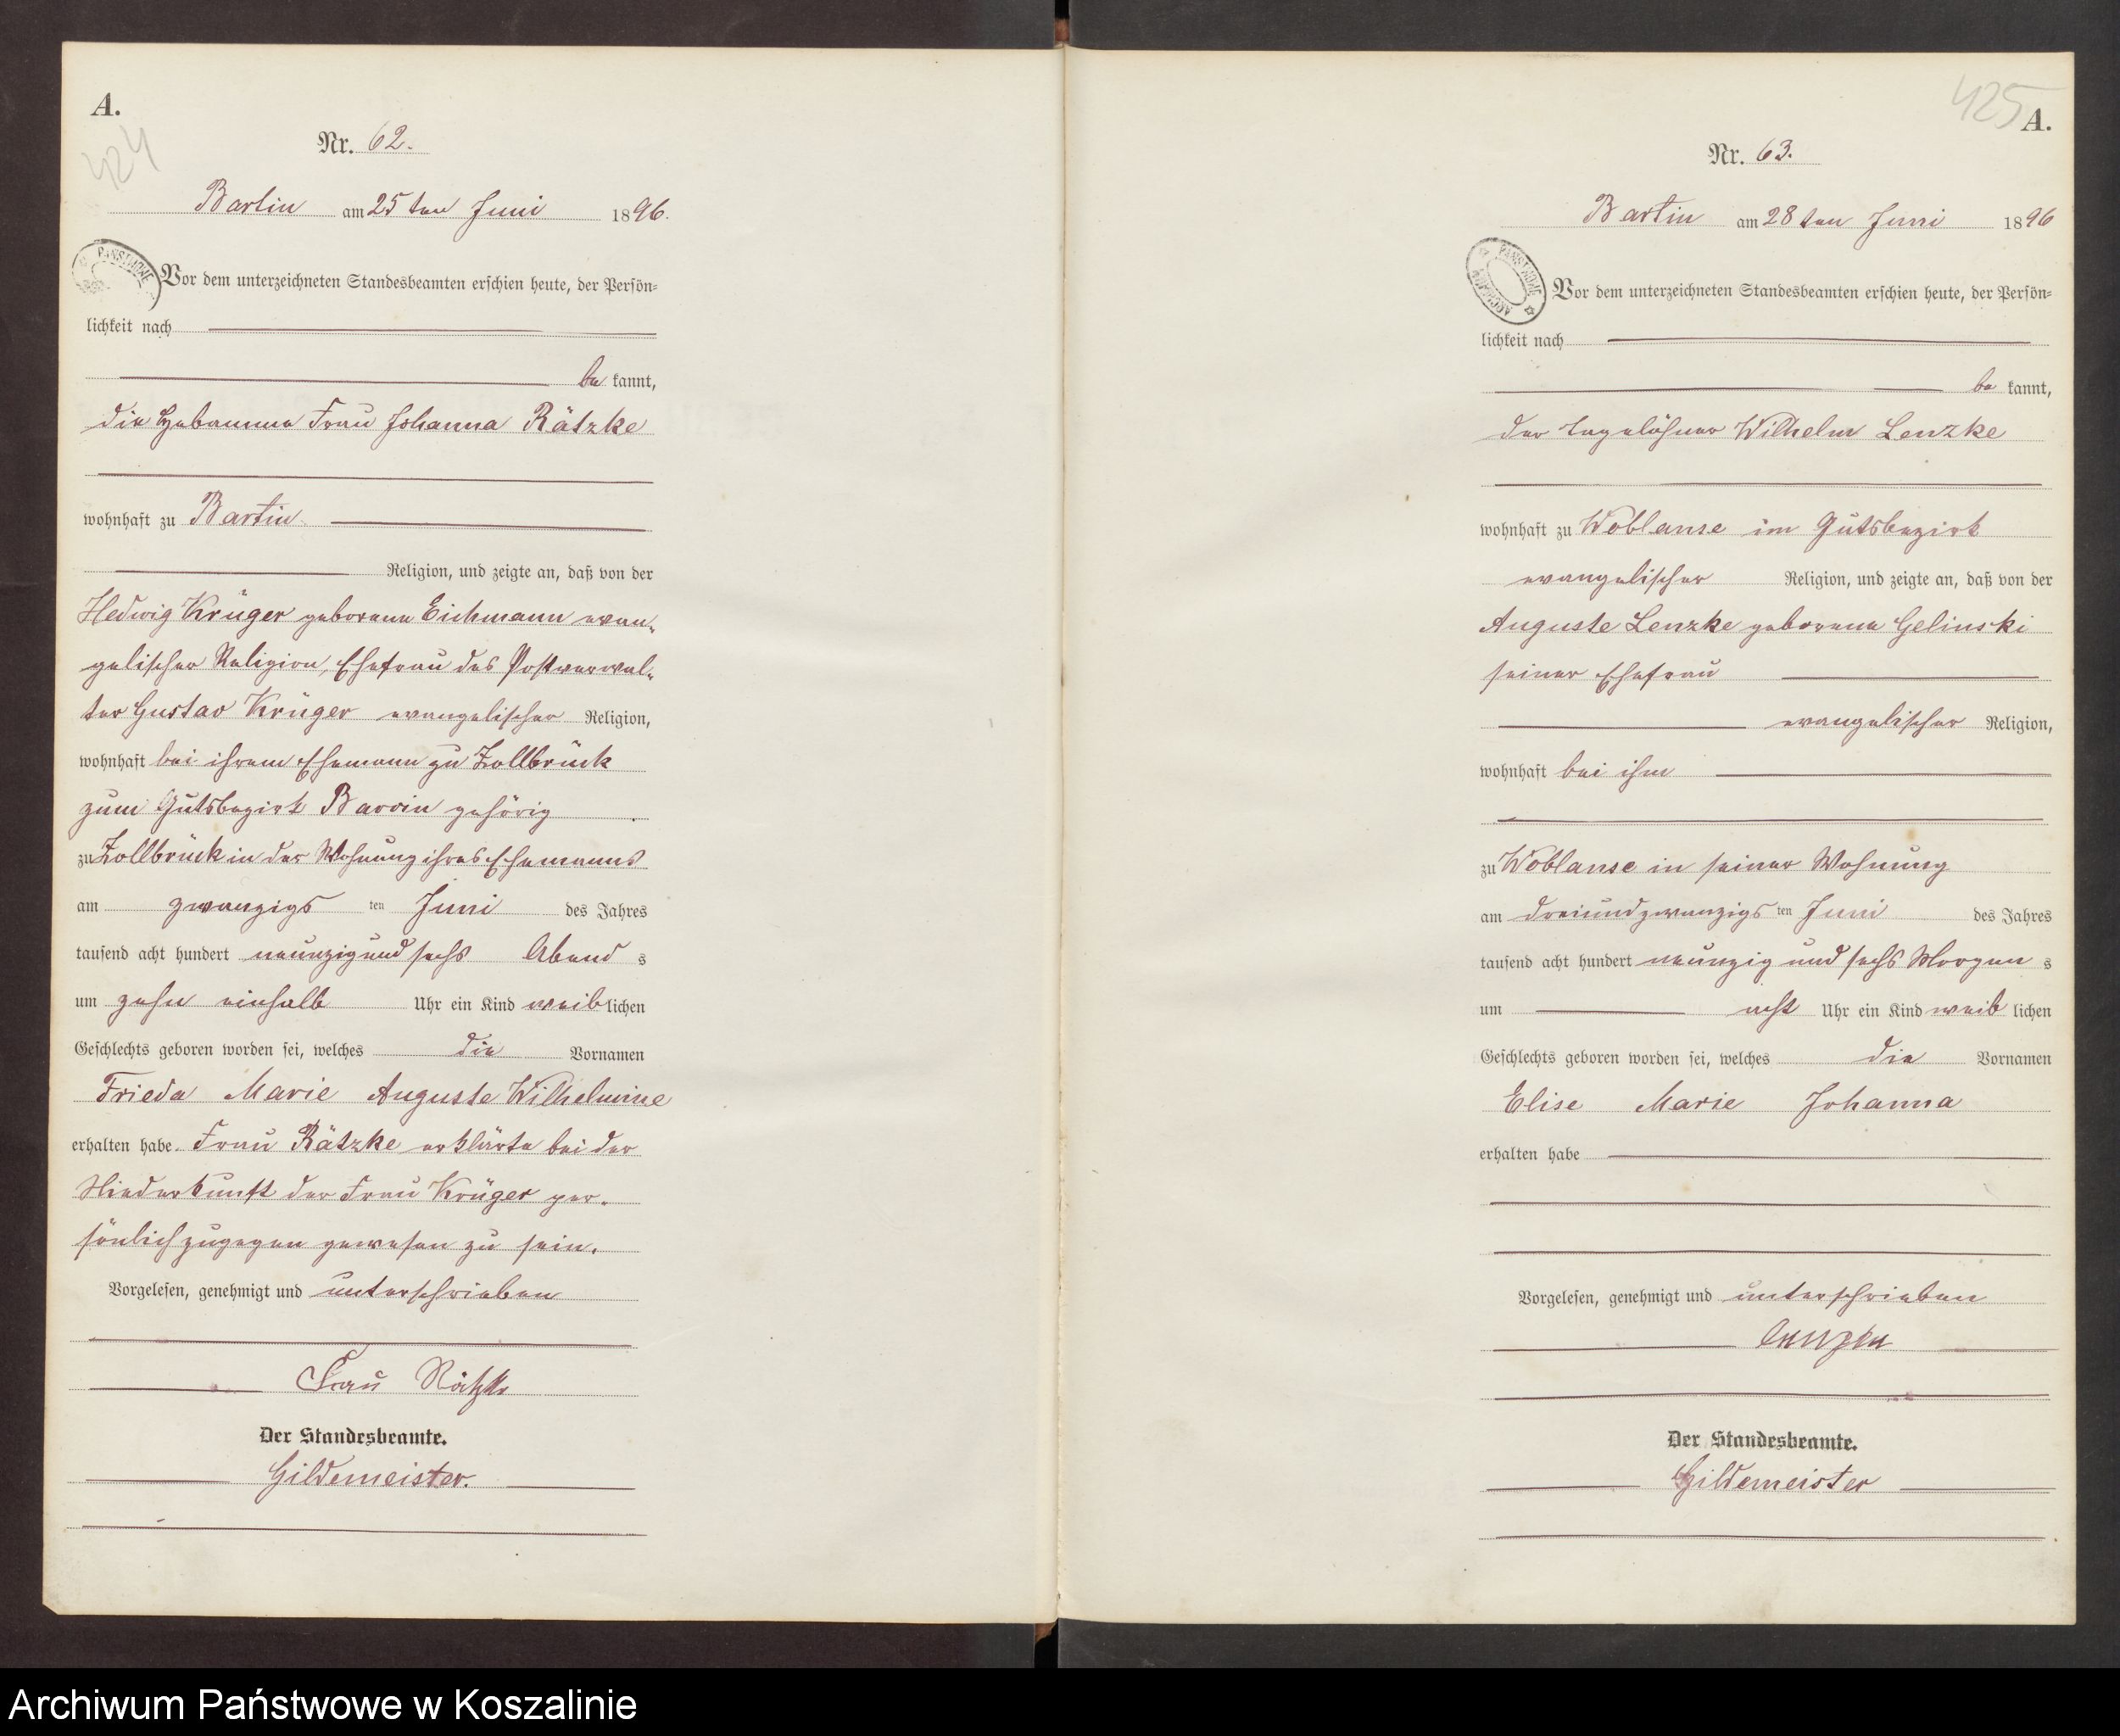 A.
424
Nr. 62.
Bartin am 25ten Juni 1896.
PAŃSTWOWE
Vor dem unterzeichneten Standesbeamten erschien heute, der Persön-
lichkeit nach
be kannt,
die Hebamme Frau Johanna Rätzke
wohnhaft zu Bartin
Religion, und zeigte an, daß von der
Hedwig Krüger geborene Eichmann evan-
gelischer Religion, Ehefrau des Postverwal-
ter Gustav Krüger evangelischer Religion,
wohnhaft bei ihrem Ehemann zu Zollbrück
zum Gutsbezirk Barvin gehörig
zu Zollbrück in der Wohnung ihres Ehemanns
am zwanzigs ten Juni des Jahres
tausend acht hundert neunzig und sechs Abend s
um zehn einhalb Uhr ein Kind weib lichen
Geschlechts geboren worden sei, welches die Vornamen
Frieda Marie Auguste Wilhelmine
erhalten habe. Frau Rätzke erklärte bei der
Niederkunft der Frau Krüger per-
sönlich zugegen gewesen zu sein.
Vorgelesen, genehmigt und unterschrieben
Frau Rätzke
Der Standesbeamte.
Gildemeister.
425
A.
Nr. 63.
Bartin am 28ten Juni 1896
PAŃSTWOWE ARCHIWUM
Vor dem unterzeichneten Standesbeamten erschien heute, der Persön-
lichkeit nach
be kannt,
der Tagelöhner Wilhelm Lenzke
wohnhaft zu Woblanse im Gutsbezirk
evangelischer Religion, und zeigte an, daß von der
Auguste Lenzke geborene Gelinski
seiner Ehefrau
evangelischer Religion,
wohnhaft bei ihm
zu Woblanse in seiner Wohnung
am dreiundzwanzigs ten Juni des Jahres
tausend acht hundert neunzig und sechs Morgen s
um acht Uhr ein Kind weib lichen
Geschlechts geboren worden sei, welches die Vornamen
Elise Marie Johanna
erhalten habe
Vorgelesen, genehmigt und unterschrieben
Lenzke
Der Standesbeamte.
Gildemeister
Archiwum Państwowe w Koszalinie